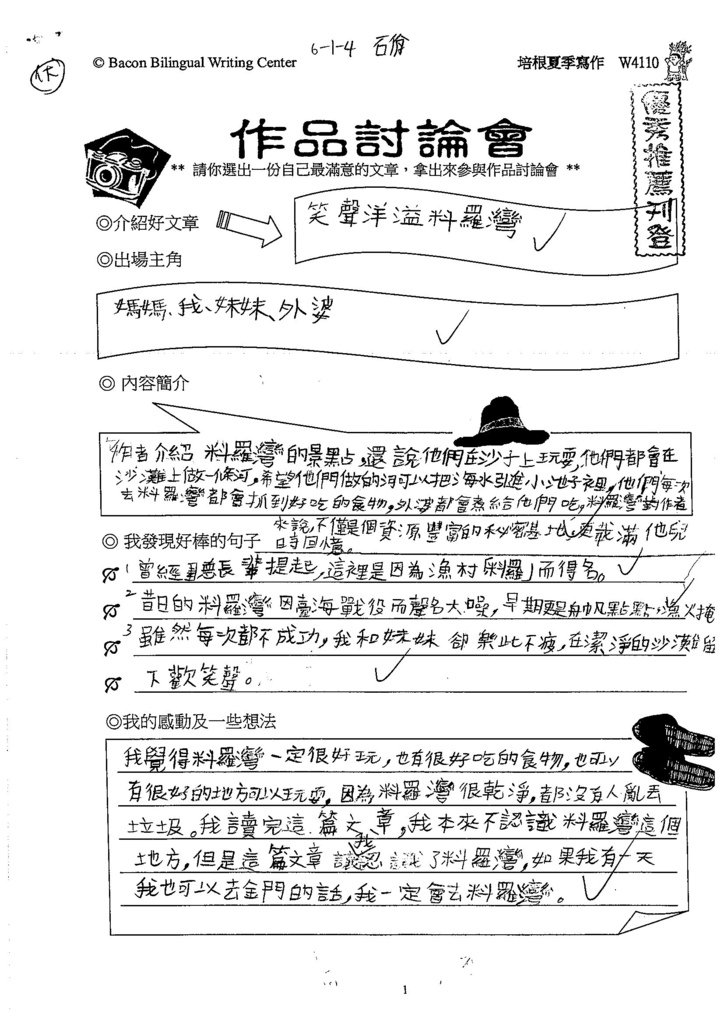 6-1-4 石
© Bacon Bilingual Writing Center
培根夏季寫作 W4110
優秀推薦刊登
作品討論會
** 請你選出一份自己最滿意的文章，拿出來參與作品討論會 **
◎介紹好文章
笑聲洋溢料羅灣
◎出場主角
媽媽、我、妹妹、外婆
◎ 內容簡介
作者介紹 料羅灣的景點，還說他們在沙子上玩耍，他們都會在
沙灘上做一條河，希望他們做的河可以把海水引進小池子裡，他們每次
去料羅灣都會抓到好吃的食物，外婆都會煮給他們吃，料羅灣對作者
來說，不僅是個資源豐富的秘密基地，更載滿他兒
時回憶。
◎ 我發現好棒的句子
1 曾經聽長輩提起，這裡是因為漁村「料羅」而得名。
2 昔日的料羅灣因臺海戰役而聲名大噪，早期更是帆點點，漁火掩
3 雖然每次都不成功，我和妹妹 卻樂此不疲，在潔淨的沙灘留
下歡笑聲。
◎我的感動及一些想法
我覺得料羅灣一定很好玩，也有很好吃的食物，也可以
有很好的地方可以玩耍，因為料羅灣很乾淨，都沒有人亂丟
垃圾。我讀完這篇文章，我本來不認識料羅灣這個
地方，但是這篇文章 讓我認識了料羅灣，如果我有一天
我也可以去金門的話，我一定會去料羅灣。
1